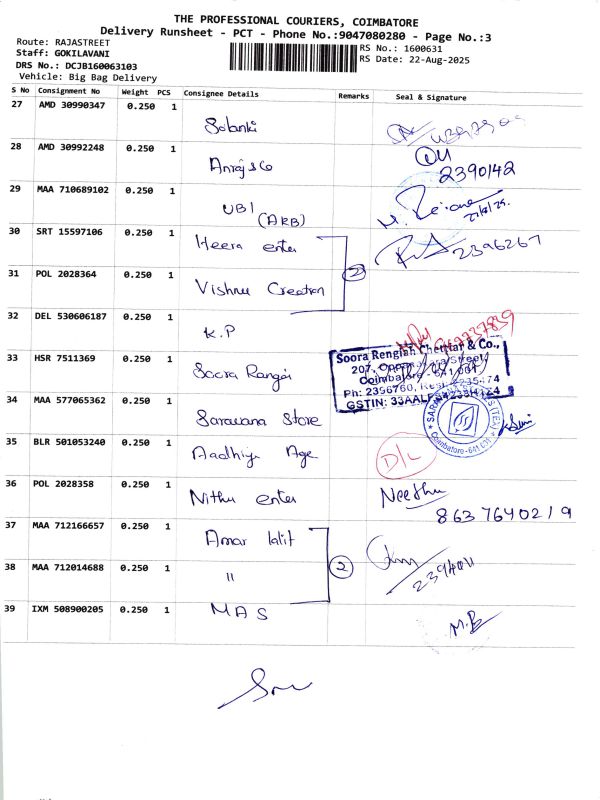 THE PROFESSIONAL COURIERS, COIMBATORE
Delivery Runsheet - PCT - Phone No.:9047080280 - Page No.:3
Route: RAJASTREET
Staff: GOKILAVANI
DRS No.: DCJB160063103
Vehicle: Big Bag Delivery
RS No.: 1600631
RS Date: 22-Aug-2025
S No Consignment No Weight PCS Consignee Details Remarks Seal & Signature
27 AMD 30990347 0.250 1 Solanki
28 AMD 30992248 0.250 1 2390142
29 MAA 710689102 0.250 1 UBI (ARB)
30 SRT 15597106 0.250 1 Heera enter 2396267
31 POL 2028364 0.250 1 Vishnu Creation 2
32 DEL 530606187 0.250 1 K.P
33 HSR 7511369 0.250 1 Soora Rangai
Soora Rengiah Chettiar & Co.,
Coimbatore - 641 001
34 MAA 577065362 0.250 1 Saravana Store
Coimbatore - 641 001
35 BLR 501053240 0.250 1 Aadhiya Age D/L
36 POL 2028358 0.250 1 Nithu enter Neethu
8637640219
37 MAA 712166657 0.250 1 Amar lalit
38 MAA 712014688 0.250 1 " 2
39 IXM 508900205 0.250 1 MAS M.B